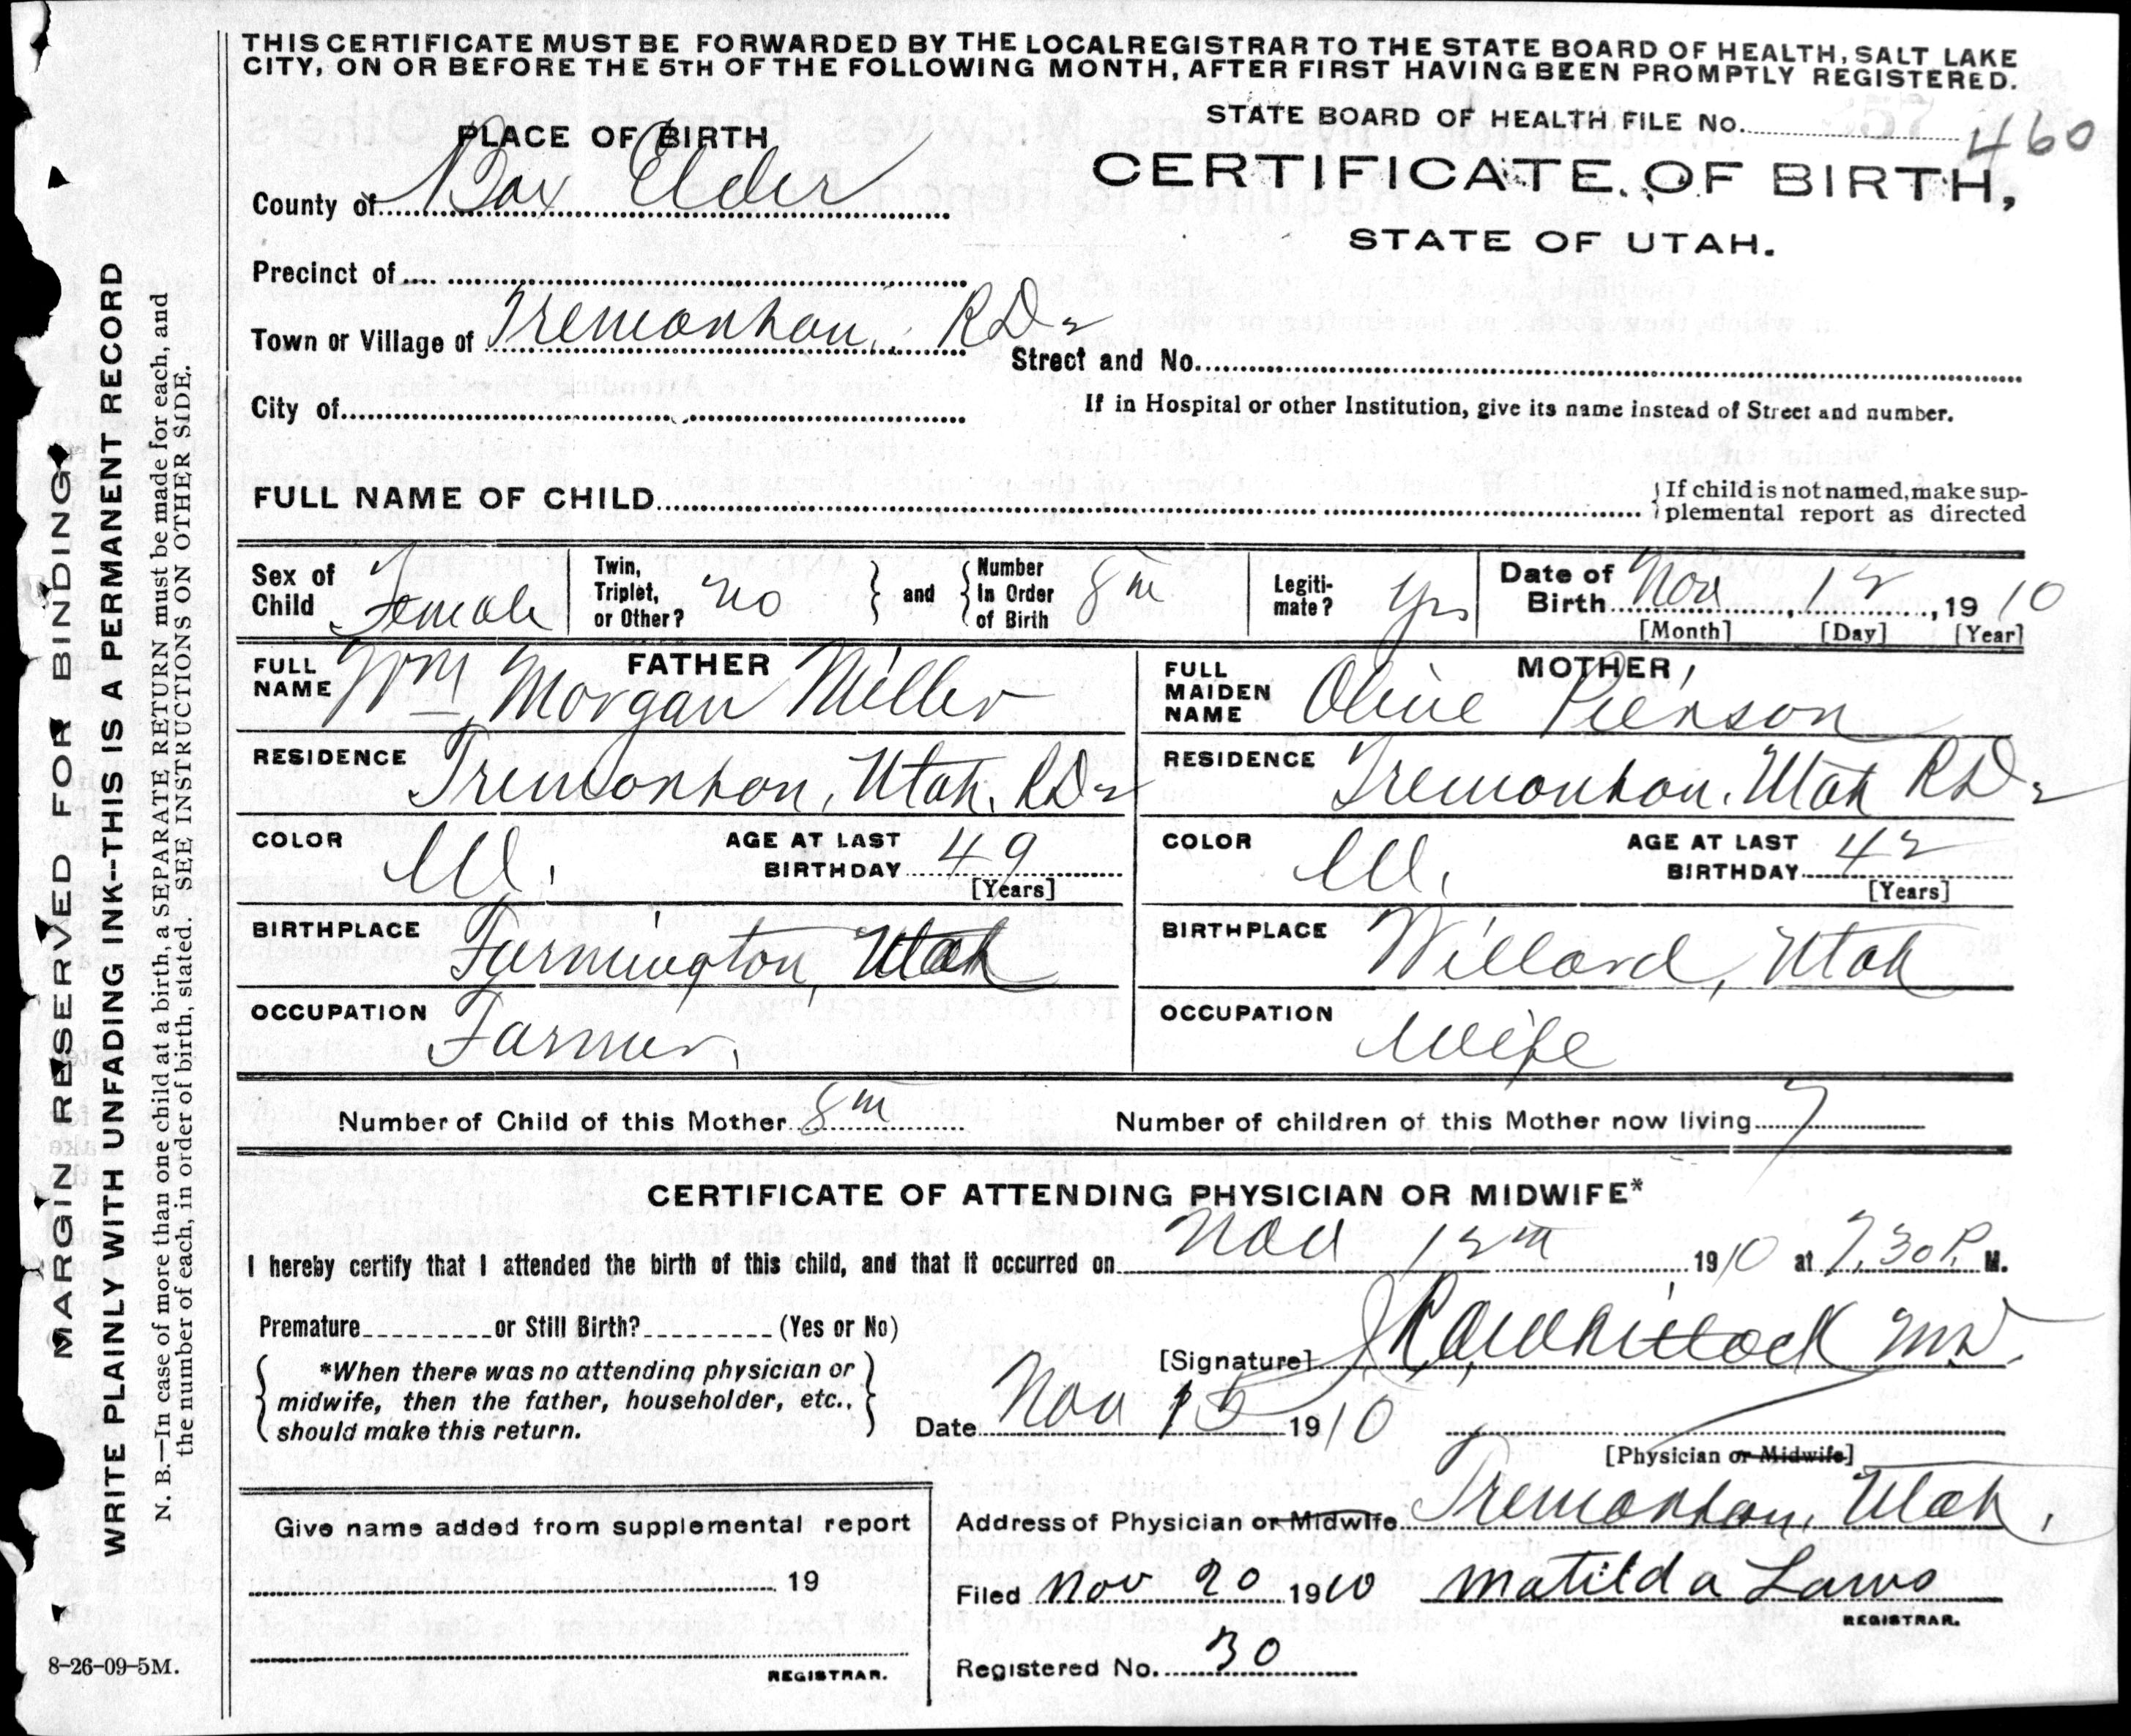 THIS CERTIFICATE MUST BE FORWARDED BY THE LOCAL REGISTRAR TO THE STATE BOARD OF HEALTH, SALT LAKE
CITY, ON OR BEFORE THE 5TH OF THE FOLLOWING MONTH, AFTER FIRST HAVING BEEN PROMPTLY REGISTERED.
STATE BOARD OF HEALTH FILE NO. 460
PLACE OF BIRTH
CERTIFICATE OF BIRTH,
County of Box Elder
STATE OF UTAH.
Precinct of
Town or Village of Tremonton. RD2
Street and No.
City of
If in Hospital or other Institution, give its name instead of Street and number.
FULL NAME OF CHILD
If child is not named, make sup-
plemental report as directed
Sex of Child Female
Twin, Triplet, or Other? no
and
Number In Order of Birth 8th
Legiti-mate? Yes
Date of Birth Nov, 12, 1910
[Month] [Day] [Year]
FATHER
FULL NAME Wm Morgan Miller
MOTHER
FULL MAIDEN NAME Olive Pierson
RESIDENCE Tremonton, Utah. RD2
RESIDENCE Tremonton, Utah RD2
COLOR W.
AGE AT LAST BIRTHDAY 49
[Years]
COLOR W.
AGE AT LAST BIRTHDAY 42
[Years]
BIRTHPLACE Farmington, Utah
BIRTHPLACE Willard, Utah
OCCUPATION Farmer.
OCCUPATION Wife
Number of Child of this Mother 8th
Number of children of this Mother now living 7
CERTIFICATE OF ATTENDING PHYSICIAN OR MIDWIFE*
I hereby certify that I attended the birth of this child, and that it occurred on Nov 12th 1910 at 7.30 P. M.
Premature or Still Birth? (Yes or No)
[Signature] Whitlock MD.
*When there was no attending physician or
midwife, then the father, householder, etc.,
should make this return.
Date Nov 15 1910
[Physician or Midwife]
Address of Physician or Midwife Tremonton, Utah.
Give name added from supplemental report
19
REGISTRAR.
Filed Nov 20 1910 Matilda Laws
REGISTRAR.
Registered No. 30
8-26-09-5M.
MARGIN RESERVED FOR BINDING
WRITE PLAINLY WITH UNFADING INK--THIS IS A PERMANENT RECORD
N. B.—In case of more than one child at a birth, a SEPARATE RETURN must be made for each, and
the number of each, in order of birth, stated. SEE INSTRUCTIONS ON OTHER SIDE.